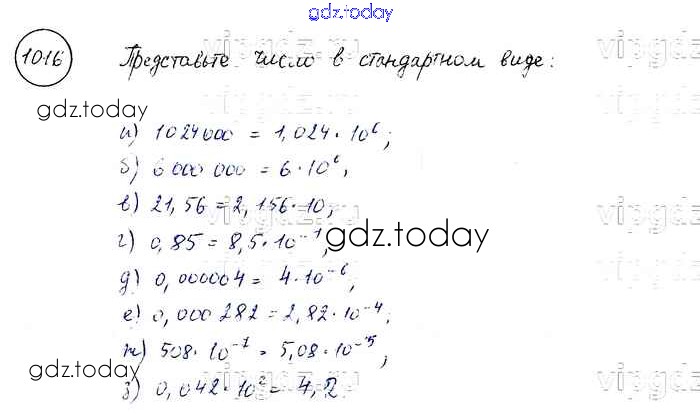 gdz.today
1016 Представьте число в стандартном виде:
gdz.today
а) 1024000 = 1,024·10⁶;
б) 6 000 000 = 6·10⁶;
в) 21,56 = 2,156·10;
г) 0,85 = 8,5·10⁻¹;
gdz.today
д) 0,000004 = 4·10⁻⁶;
е) 0,000 282 = 2,82·10⁻⁴;
ж) 508·10⁻⁷ = 5,08·10⁻⁵;
gdz.today
з) 0,042·10² = 4,2
vipgdz